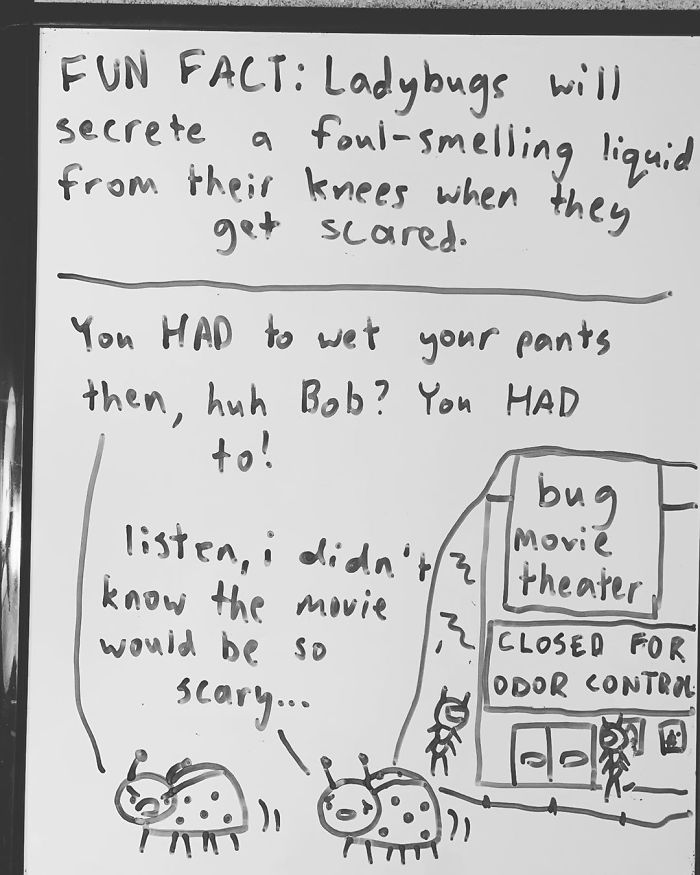 FUN FACT: Ladybugs will
secrete a foul-smelling liquid
from their knees when they
get scared.
You HAD to wet your pants
then, huh Bob? You HAD
to!
listen, i didn't
know the movie
would be so
scary...
bug
movie
theater
CLOSED FOR
ODOR CONTROL